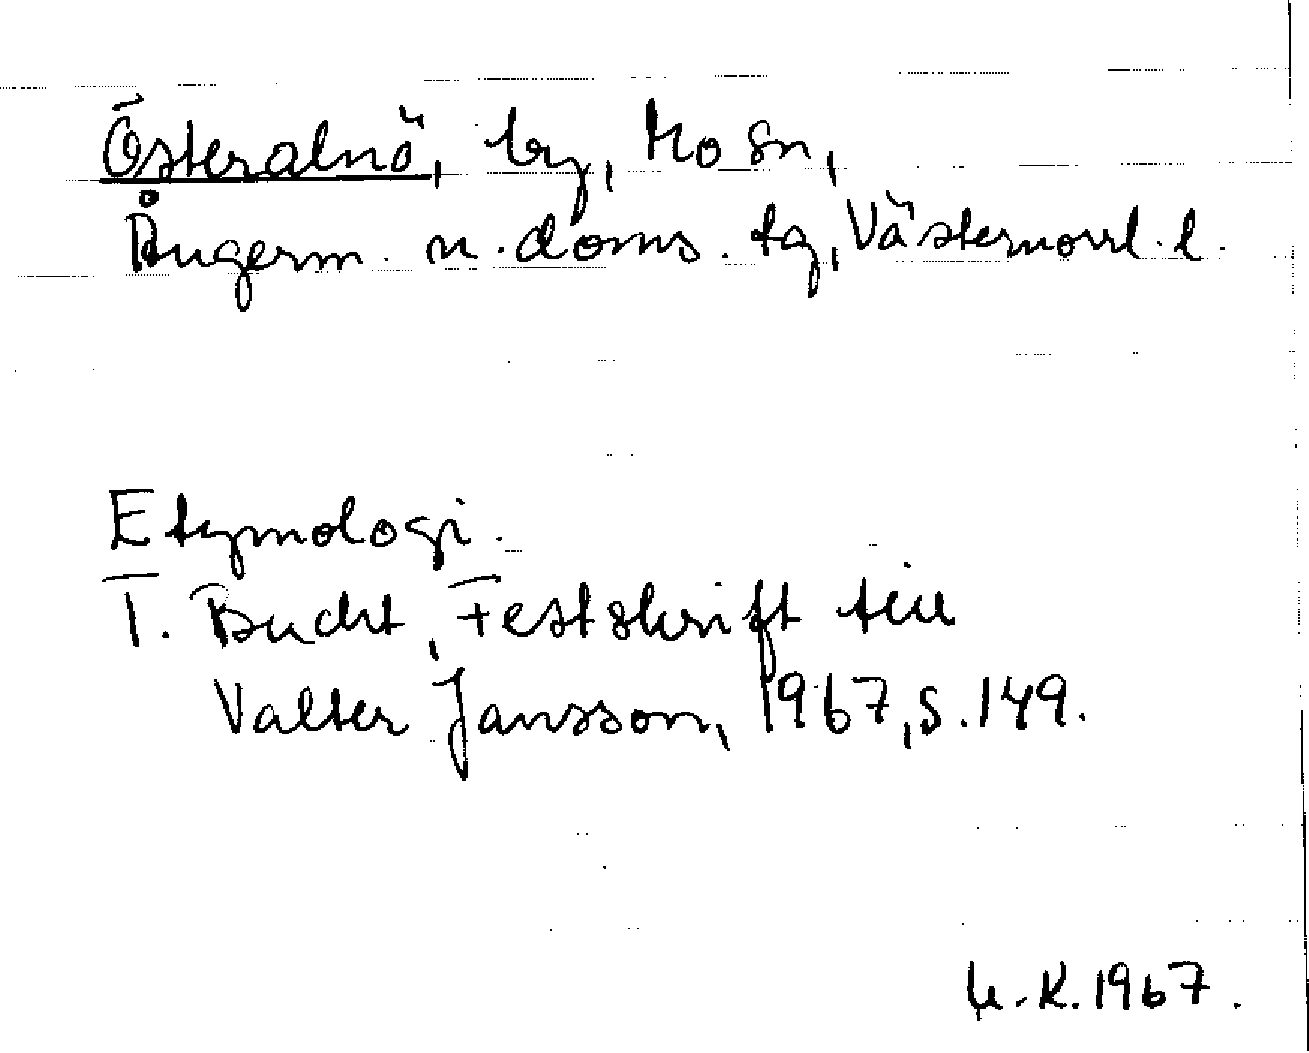 Österalnö, by, Mo sn,
Ångerm. n. doms. tg, Västernorrl. l.
Etymologi.
T. Bucht, Festskrift till
Valter Jansson, 1967, s. 149.
K. 1967.